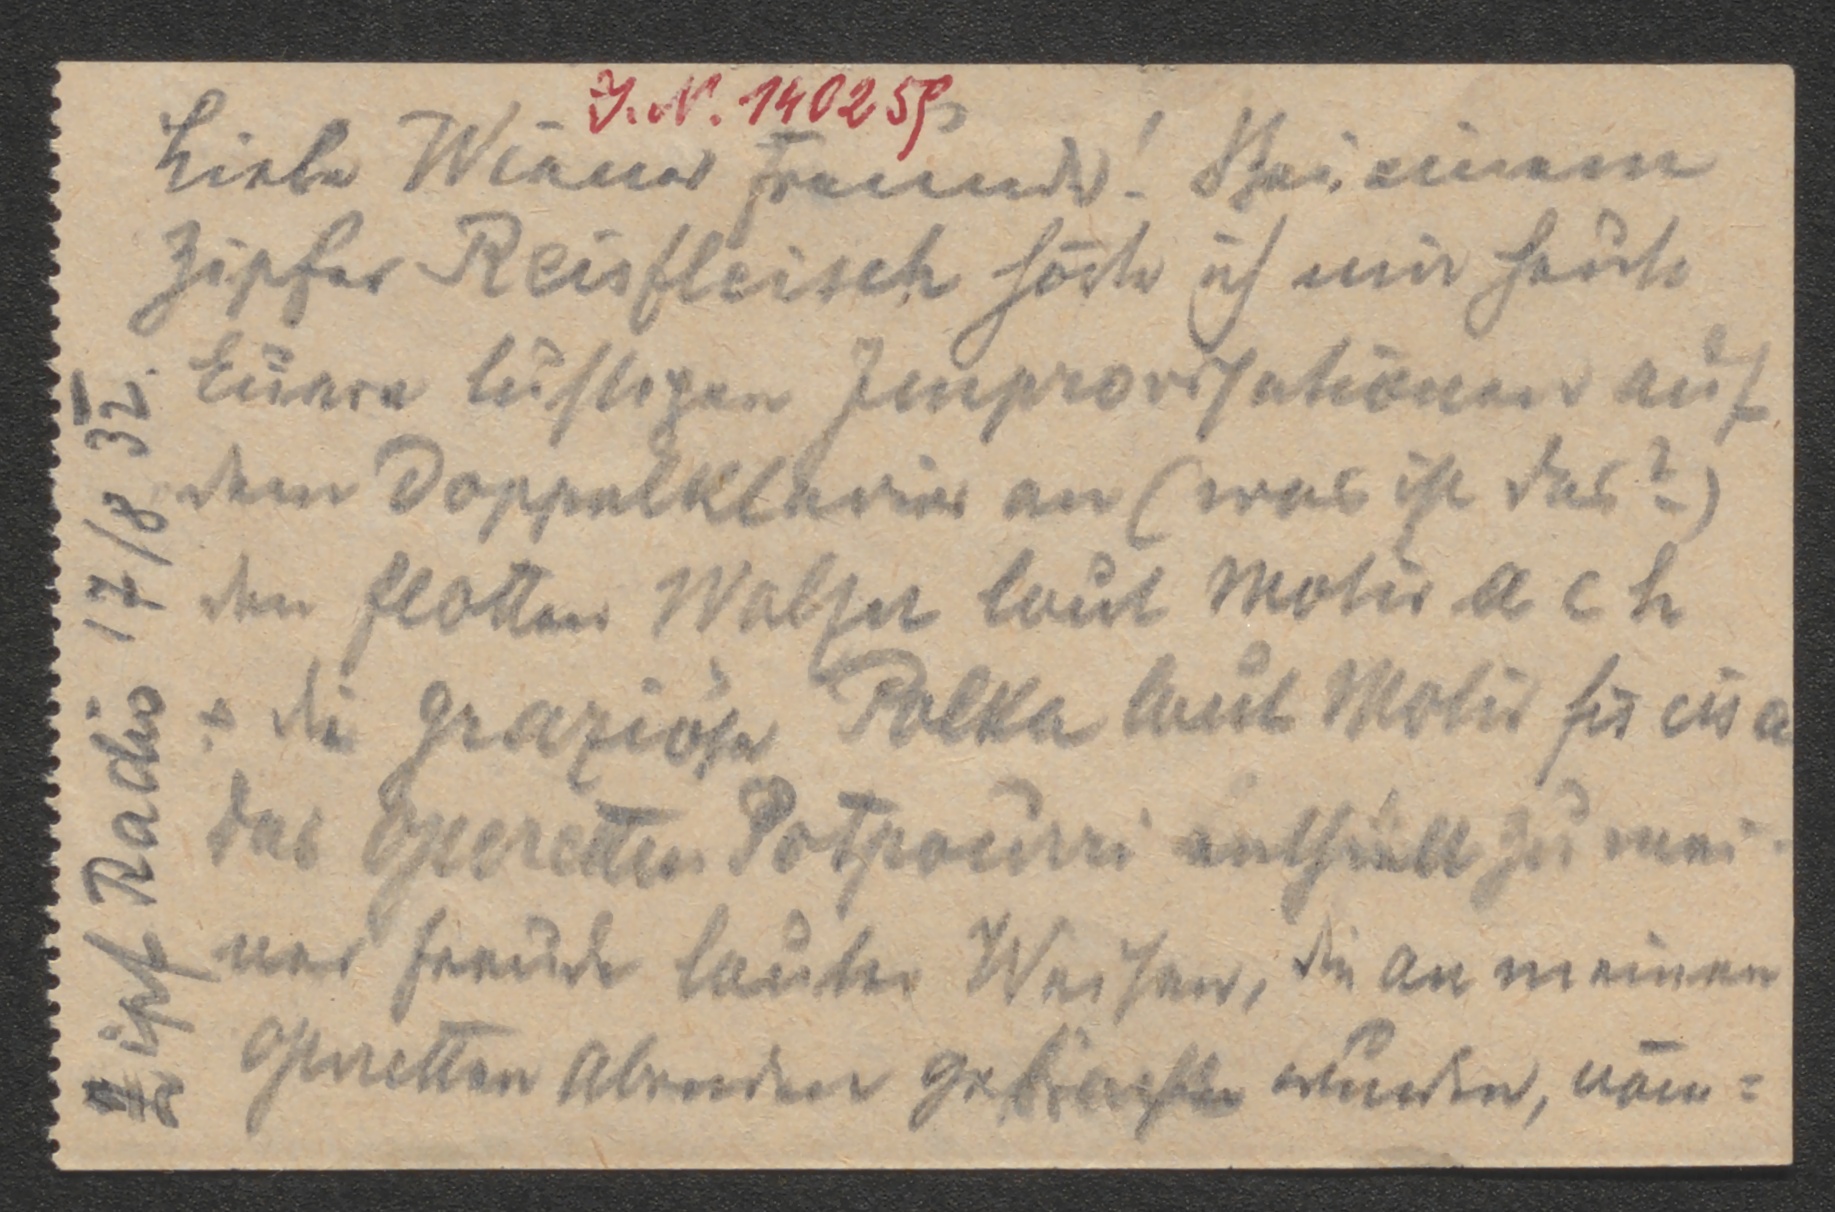 J. N. 140259
Liebe Wiener Freunde! Bei einem
Zipfer Reisfleisch höre ich mir heute
Euere lustigen Improvisationen auf
dem Doppelklavier an (was ist das?)
den flotten Walzer laut Motiv a c h
+ die graziöse Polka laut Motiv fis cis a
das Operetten Potpourri enthält zu mei-
ner Freude lauter Weisen, die an meinen
Operetten Abenden gebracht wurden, näm=
Zipf Radio 17/8 32.